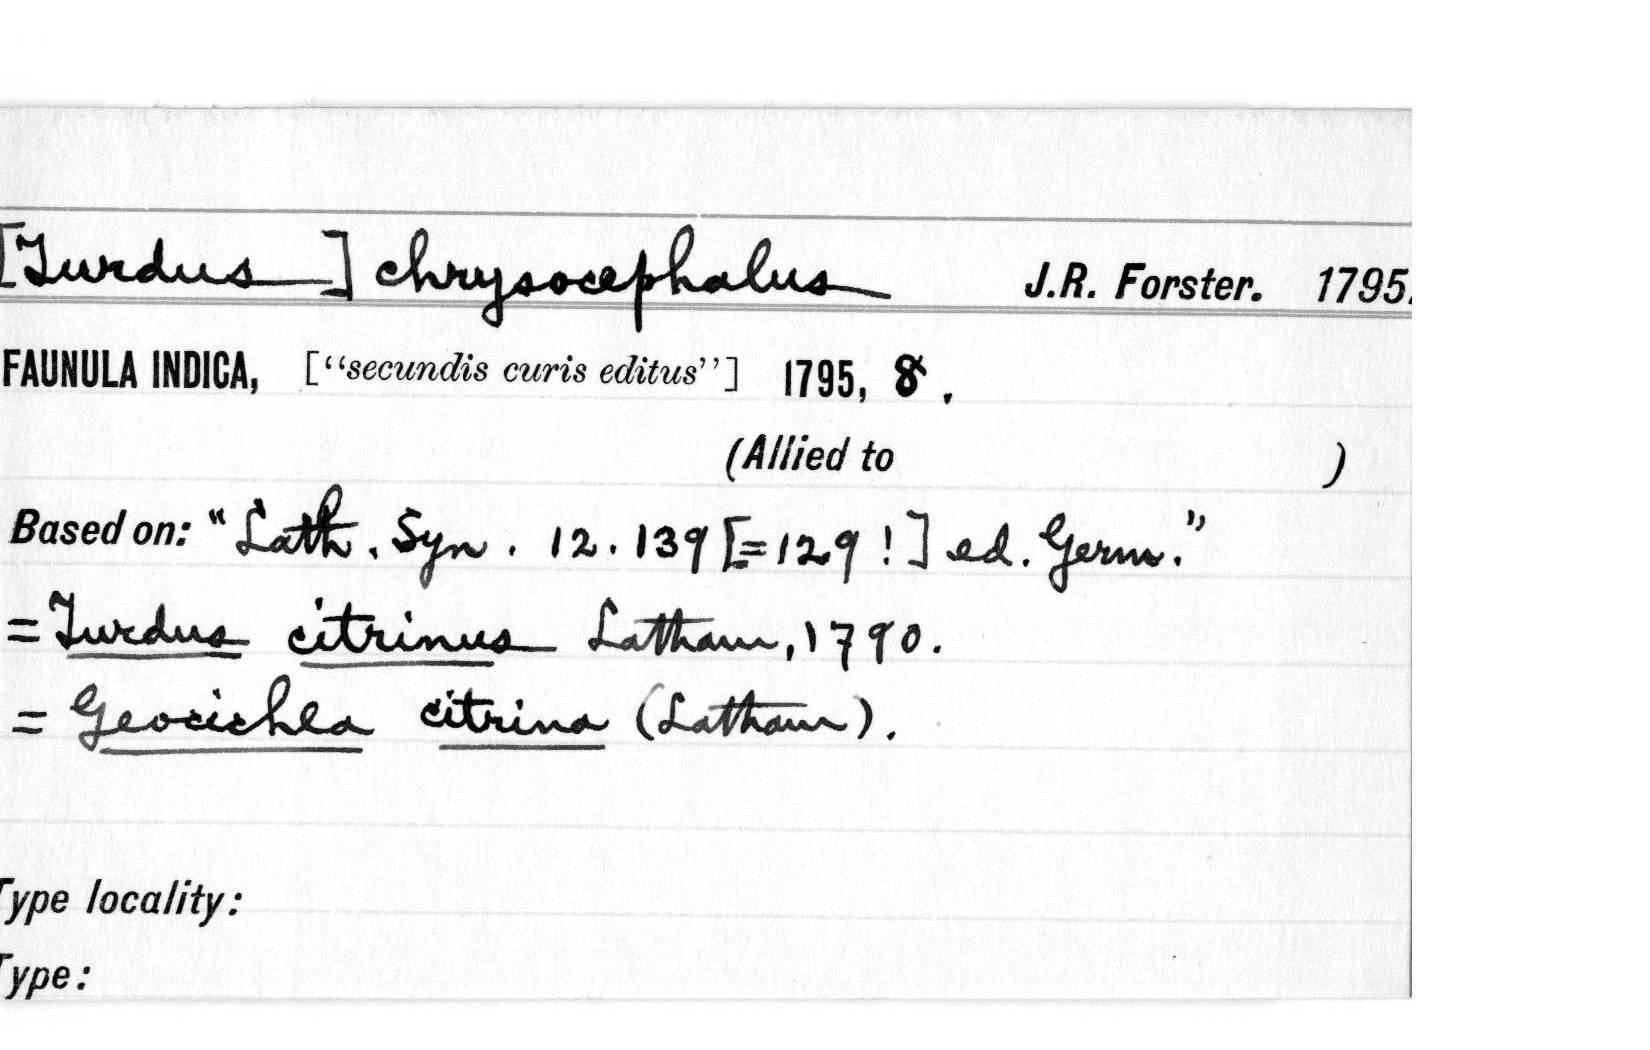 [Turdus] chrysocephalus J.R. Forster. 1795.
FAUNULA INDICA, [“secundis curis editus”] 1795, 8.
(Allied to )
Based on: "Lath. Syn. 12. 139 [=129!] ed. Germ."
= Turdus citrinus Latham, 1790.
= Geocichla citrina (Latham).
Type locality:
Type: